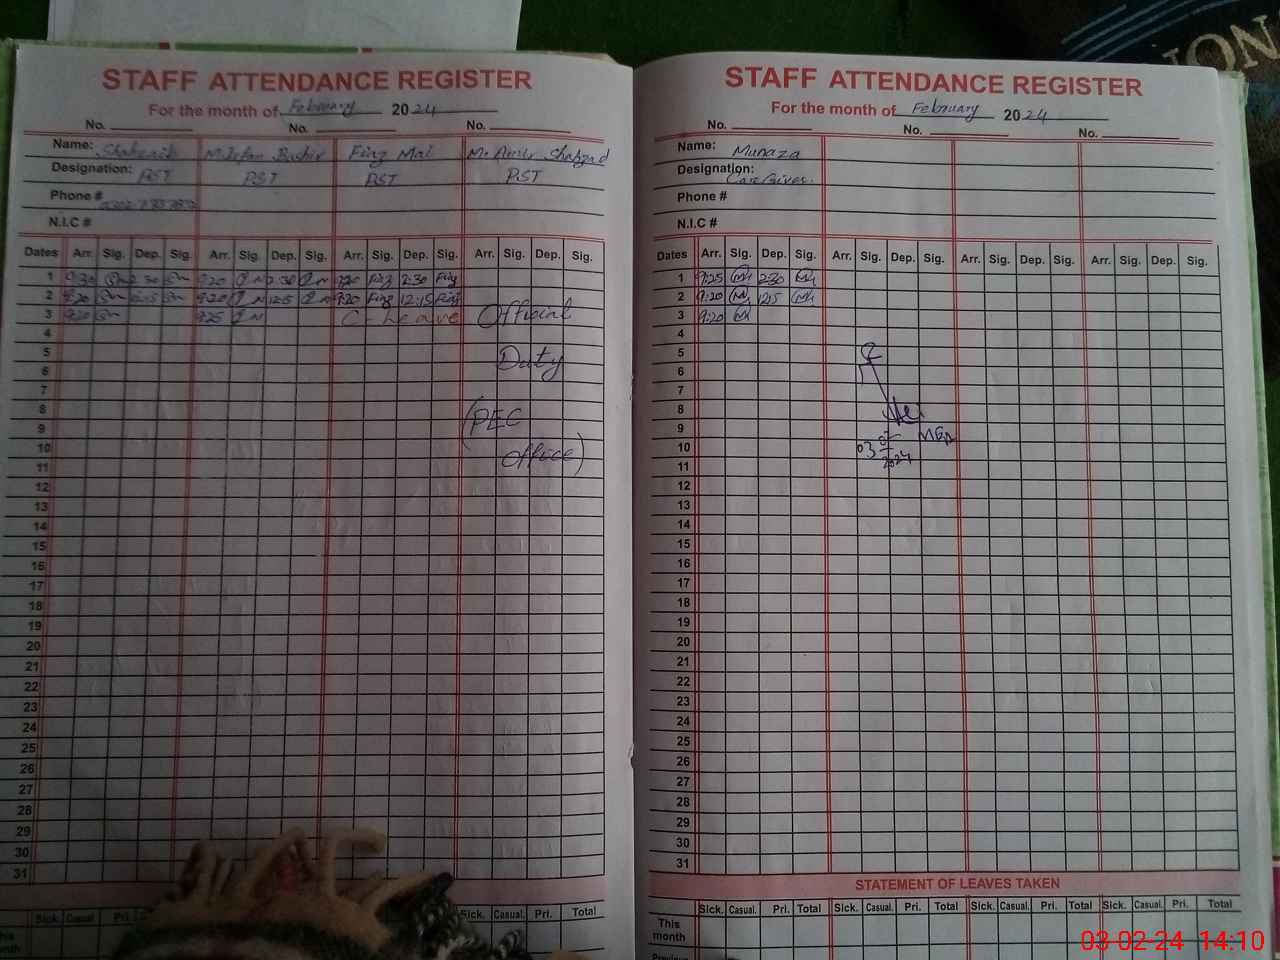 STAFF ATTENDANCE REGISTER
For the month of February 2024
No. No. No.
Name: M. Irfan Bashir Fiaz Mai M. Amir Shahzad
Designation: PST PST PST PST
Phone #
N.I.C #
Dates Arr. Sig. Dep. Sig. Arr. Sig. Dep. Sig. Arr. Sig. Dep. Sig. Arr. Sig. Dep. Sig.
1 9:30 2:30 9:20 2:30 9:20 Fiaz 2:30 Fiaz
2 9:20 12:15 9:20 12:15 9:20 Fiaz 12:15 Fiaz
3 9:20 9:25 C-Leave Official
4
5 Duty
6
7
8 (PEC
9
10 office)
11
12
13
14
15
16
17
18
19
20
21
22
23
24
25
26
27
28
29
30
31
Sick. Casual. Pri. Sick. Casual. Pri. Total
This
month
STAFF ATTENDANCE REGISTER
For the month of February 2024
No. No. No.
Name: Munaza
Designation: Care Giver.
Phone #
N.I.C #
Dates Arr. Sig. Dep. Sig. Arr. Sig. Dep. Sig. Arr. Sig. Dep. Sig. Arr. Sig. Dep. Sig.
1 9:25 2:30
2 9:20 12:15
3 9:20
4
5
6
7
8
9 MEA
10 03 02 2024
11
12
13
14
15
16
17
18
19
20
21
22
23
24
25
26
27
28
29
30
31
STATEMENT OF LEAVES TAKEN
Sick. Casual. Pri. Total Sick. Casual. Pri. Total Sick. Casual. Pri. Total Sick. Casual. Pri. Total
This
month
Previous
03-02-24 14:10
ON